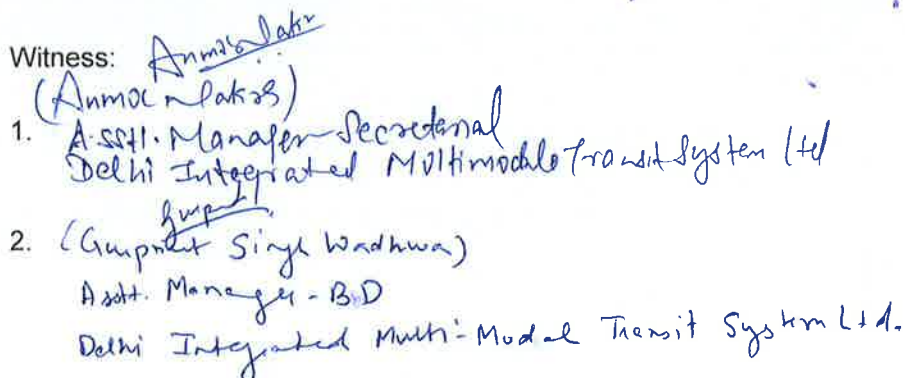 Witness:
(Anmol
1. Asstt. Manager Secretarial
Delhi Integrated Multimodale Transit System Ltd
2. (Gurpreet Singh Wadhwa)
Asstt. Manager - B.D
Delhi Integrated Multi-Modal Transit System Ltd.